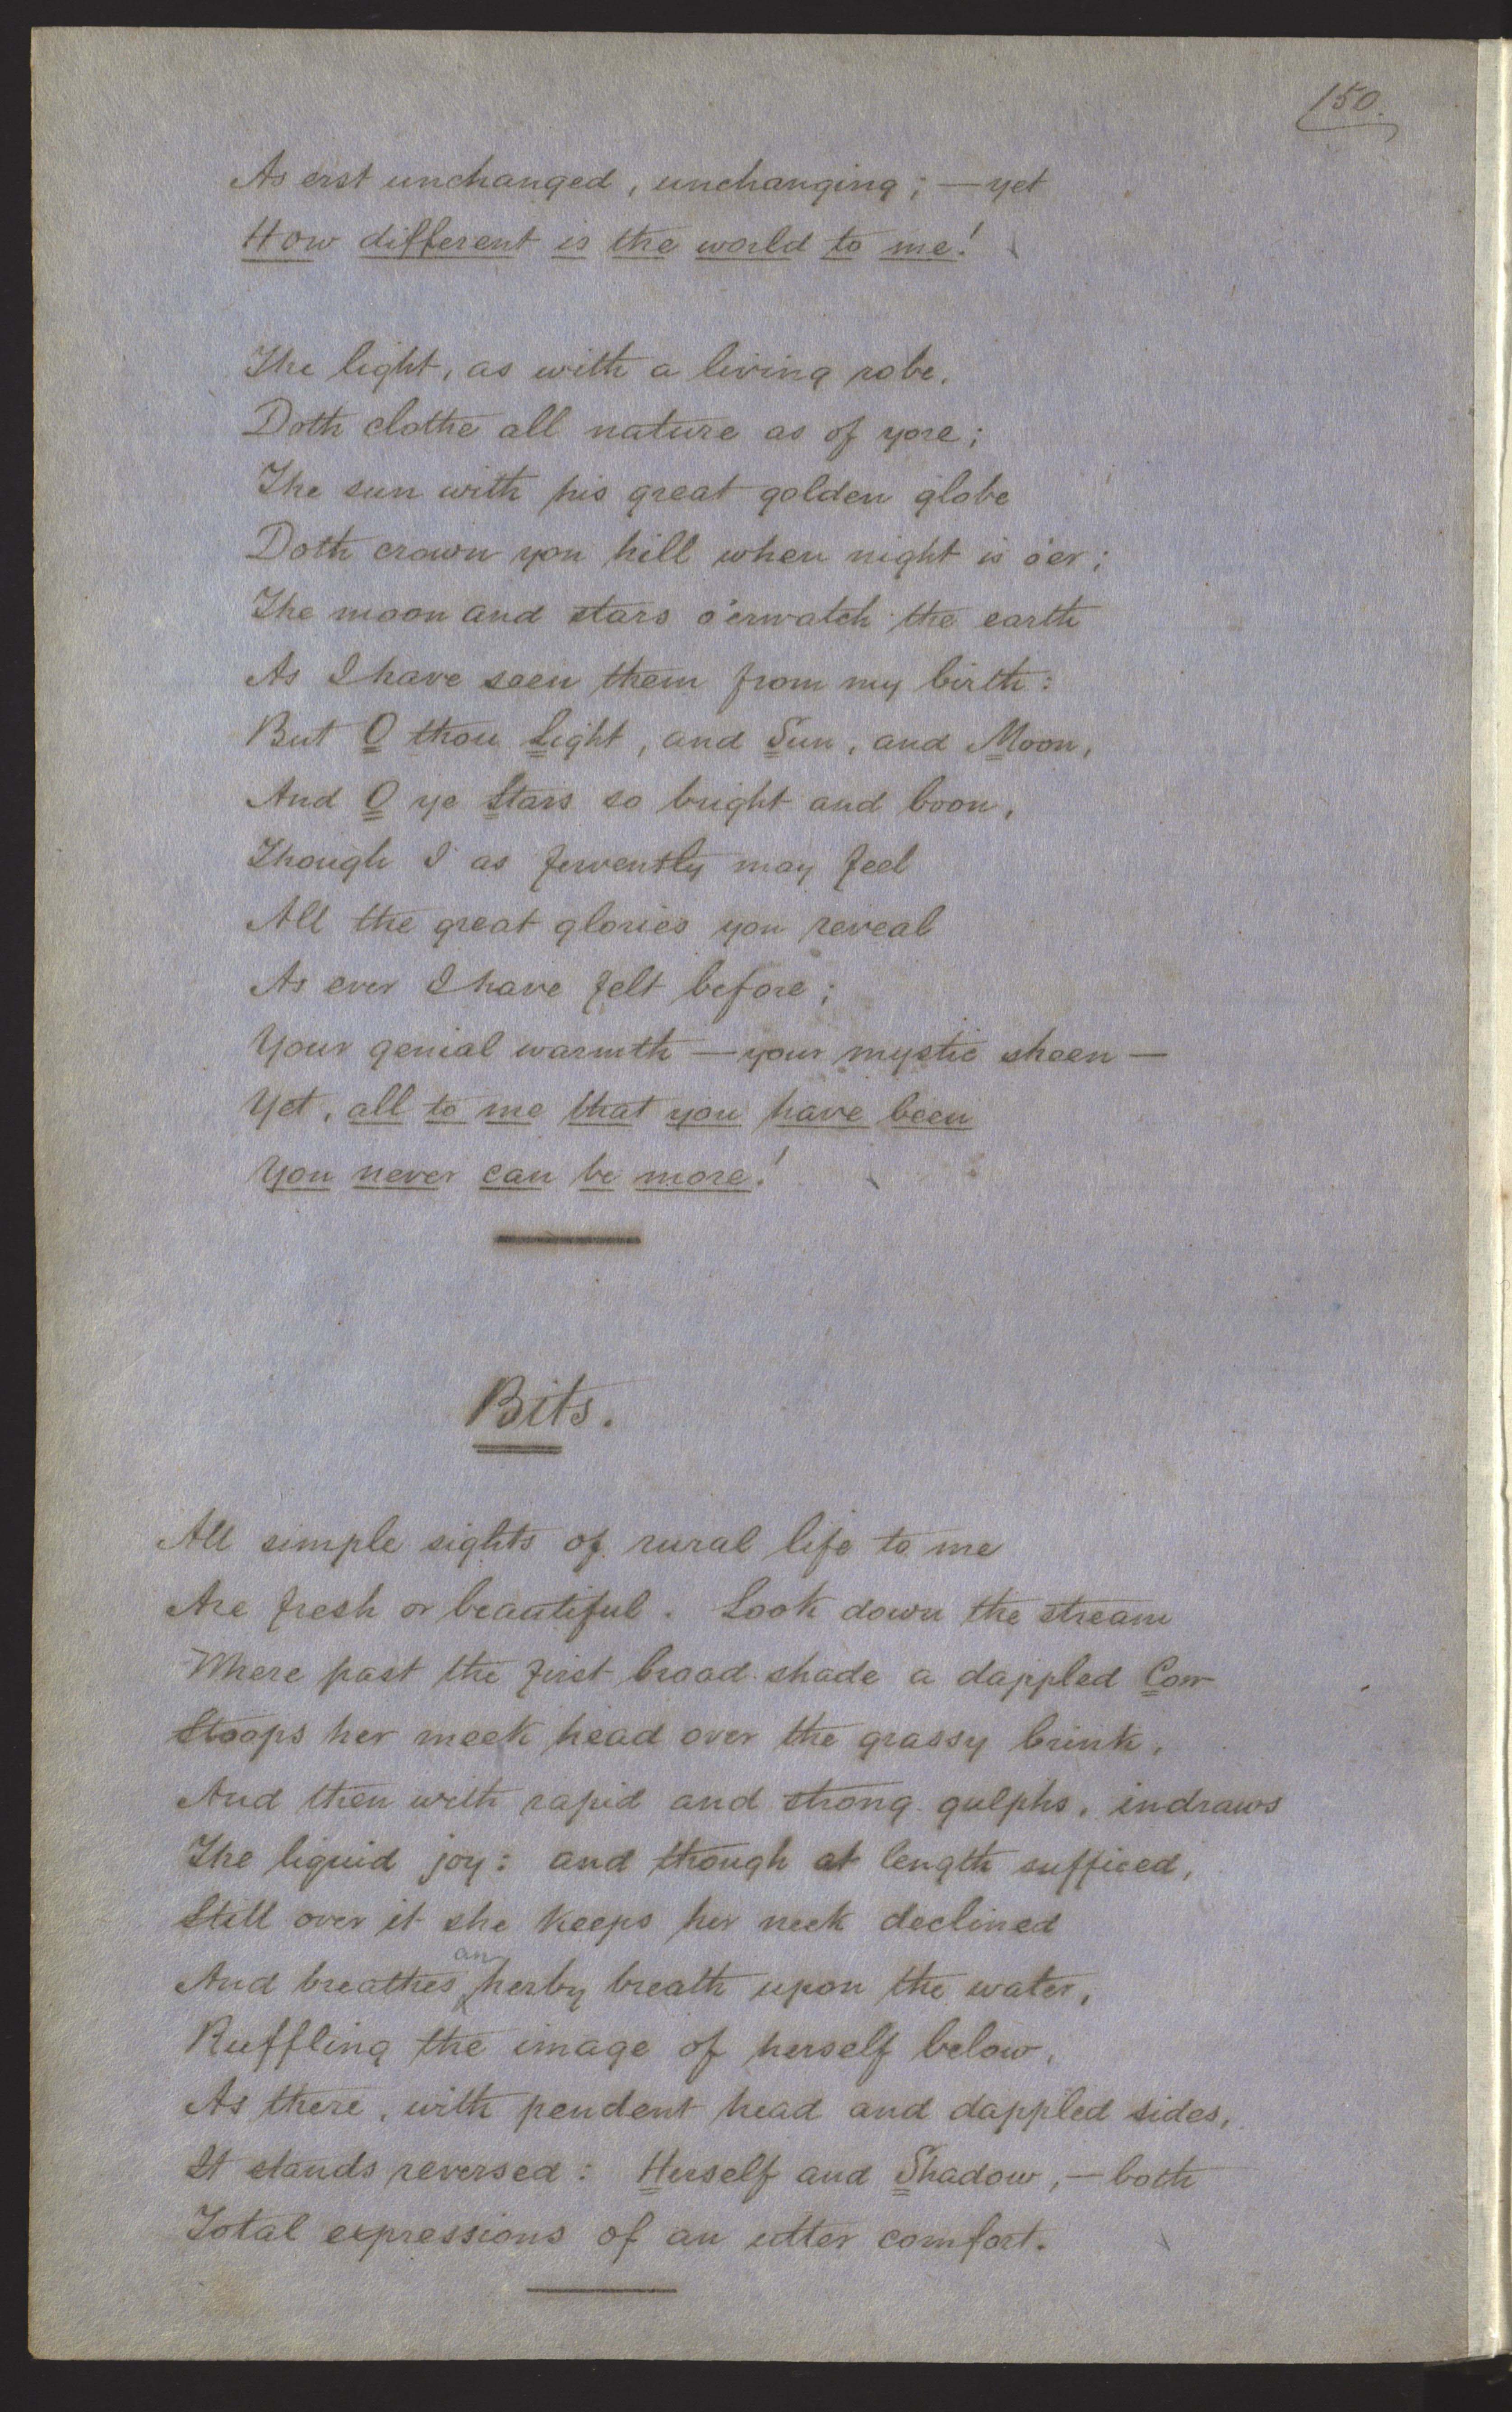 150.
As erst unchanged, unchanging; — yet
How different is the world to me!
The light, as with a living robe,
Doth clothe all nature as of yore;
The sun with his great golden globe
Doth crown yon hill when night is o'er;
The moon and stars o'erwatch the earth
As I have seen them from my birth:
But O thou Light, and Sun, and Moon,
And O ye Stars so bright and boon,
Though I as fervently may feel
All the great glories you reveal
As ever I have felt before;
Your genial warmth — your mystic sheen —
Yet, all to me that you have been
You never can be more!
Bits.
All simple sights of rural life to me
Are fresh or beautiful. Look down the stream
Where past the first broad shade a dappled Cow
Stoops her meek head over the grassy brink,
And then with rapid and strong gulphs, indraws
The liquid joy: and though at length sufficed,
Still over it she keeps her neck declined
And breathes an herby breath upon the water,
Ruffling the image of herself below,
As there, with pendent head and dappled sides,
It stands reversed: Herself and Shadow, — both
Total expressions of an utter comfort.